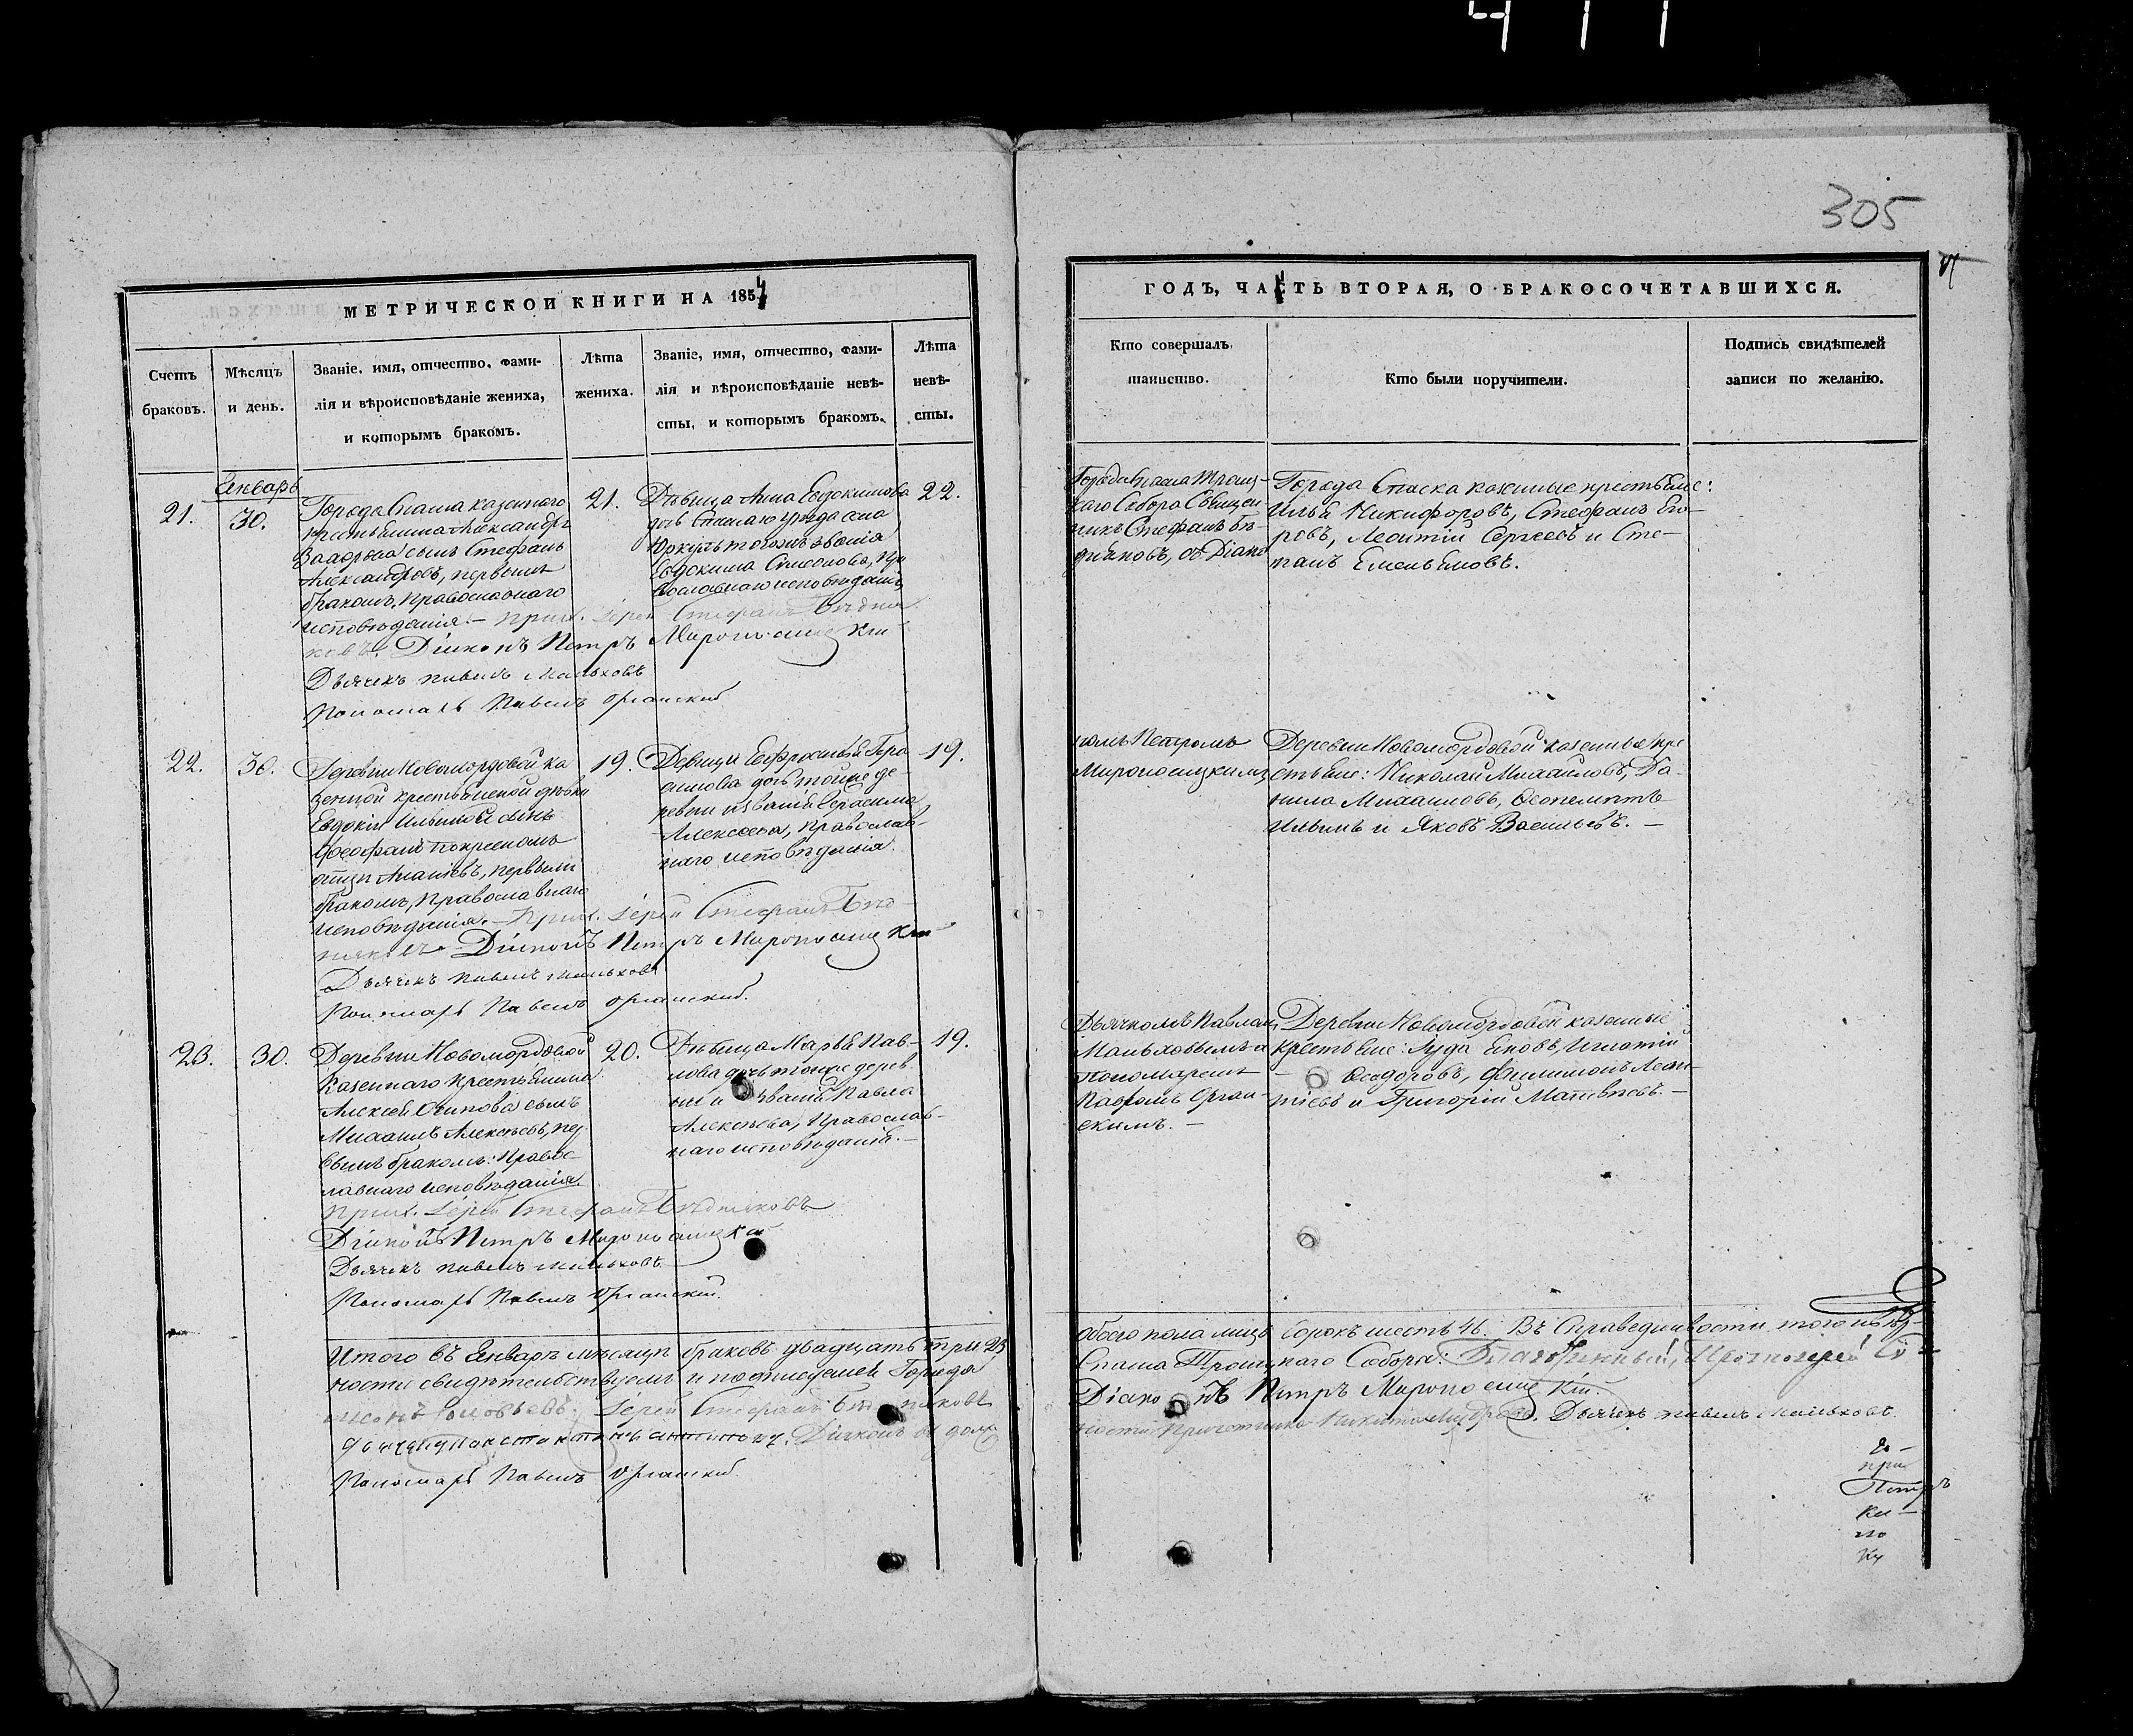 411
305
МЕТРИЧЕСКОЙ КНИГИ НА 1854
Счетъ браковъ.
Мѣсяцъ и день.
Званіе, имя, отчество, фами-
лія и вѣроисповѣданіе жениха,
и которымъ бракомъ.
Лѣта жениха.
Званіе, имя, отчество, фами-
лія и вѣроисповѣданіе невѣ-
сты, и которымъ бракомъ.
Лѣта невѣ-
сты.
Январь
21.
30.
Города Спаска казеннаго
крестьянина Александра
сынъ Стефанъ
Александровъ, первымъ
бракомъ, православнаго
исповѣданія. – Прих. Іерей Стефанъ Бѣдня
ковъ. Діаконъ Петръ Мироносицкій
Дьячекъ Павелъ Маньковъ
Пономарь Павелъ Органскій
21.
Дѣвица Анна Евдокимова
дочь Спаскаго уѣзда села
тогоже званія
Евдокима Симеонова, пра
вославнаго исповѣданія,
22.
22.
30.
Деревни Новомордовой ка
зенной крестьянской дѣвки
Евдокіи Ильиной сынъ
Феофанъ по крестномъ
отцѣ Ананьевъ, первымъ
бракомъ, православнаго
исповѣданія. – Прих. Іерей Стефанъ Бѣд-
няковъ Діаконъ Петръ Мироносицкій
Дьячекъ Павелъ Маньковъ
Пономарь Павелъ Органскій.
19.
Девица Евфросинья Гера
симова дочь тойже де-
ревни и званія Герасима
Алексеева, православ-
наго исповѣданія.
19.
23.
30.
Деревни Новомордовой
казеннаго крестьянина
Алексѣя Осипова сынъ
Михаилъ Алексѣевъ, пер
вымъ бракомъ: Правос-
лавнаго исповѣданія.
Прих. Іерей Стефанъ Бѣдняковъ
Діаконъ Петръ Мироносицкій
Дьячекъ Павелъ Маньковъ.
Пономарь Павелъ Органскій.
20.
Дѣвица Марья Пав-
лова дочь тойже дерев
ни и званія Павла
Алексѣева, Православ-
наго исповѣданія. –
19.
Итого въ Январѣ мѣсяцѣ браковъ двадцать три 23
ности свидѣтельствуемъ и подписуемся Города
Соловьевъ. Іерей Стефанъ Бѣдняковъ
Діаконъ
Пономарь Павелъ Органскій
ГОДЪ, ЧАСТЬ ВТОРАЯ, О БРАКОСОЧЕТАВШИХСЯ.
Кто совершалъ
таинство.
Кто были поручители.
Подпись свидѣтелей
записи по желанію.
Города Спаска Троиц-
каго Собора Священ
никъ Стефанъ Бѣ-
дняковъ, съ Діако
Города Спаска казенные крестьяне:
Илья Никифоровъ, Стефанъ Его-
ровъ, Леонтій Сергѣевъ и Сте-
панъ Емельяновъ.
номъ Петромъ
Мироносицкимъ
Деревни Новомордовой казенные кре
стьяне: Николай Михайловъ, Да-
нила Михаиловъ, Феопемптъ
Ильинъ и Яковъ Васильевъ. –
Дьячкомъ Павломъ
Маньковымъ и
Пономаремъ
Павломъ Орган-
скимъ. –
Деревни Новомордовой казенные
крестьяне: Іуда Яковъ, Игнатій
Феодоровъ, Филимонъ Леон-
тіевъ и Григорій Матвѣевъ. –
обоего пола лицъ сорокъ шесть 46. Въ справедливости того
Спаска Троицкаго Собора: Благочинный, Протоіерей
Діаконъ Петръ Мироносицкій.
Дьячекъ Павелъ Маньковъ.
при
Петръ